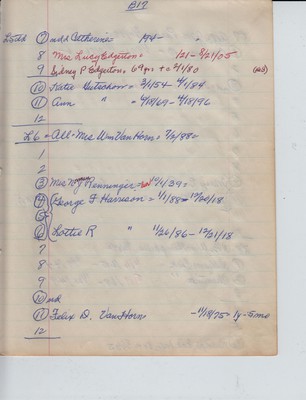 B17
7 Catherine
8 Mrs. Lucy Edgerton = 121 - 3/21/05
9 Sidney P Edgerton = 69 yrs + 2/1/80
10 Katie Hutschow = - 4/1/84
11 Ann " = 4/18/69 - 4/18/96
12
L6 = All - Mrs Wm Van Horn = 7/2/98 =
1
2
3 Mrs Renninger = /1/39 =
4 George F Harrison = 1/1/88 - 12/20/18
5
6 Lottie R " 1/26/86 - 12/21/18
7
8
9
10 mkd
11 Felix D. Van Horn - 11/18/75 = 1y-5mo
12